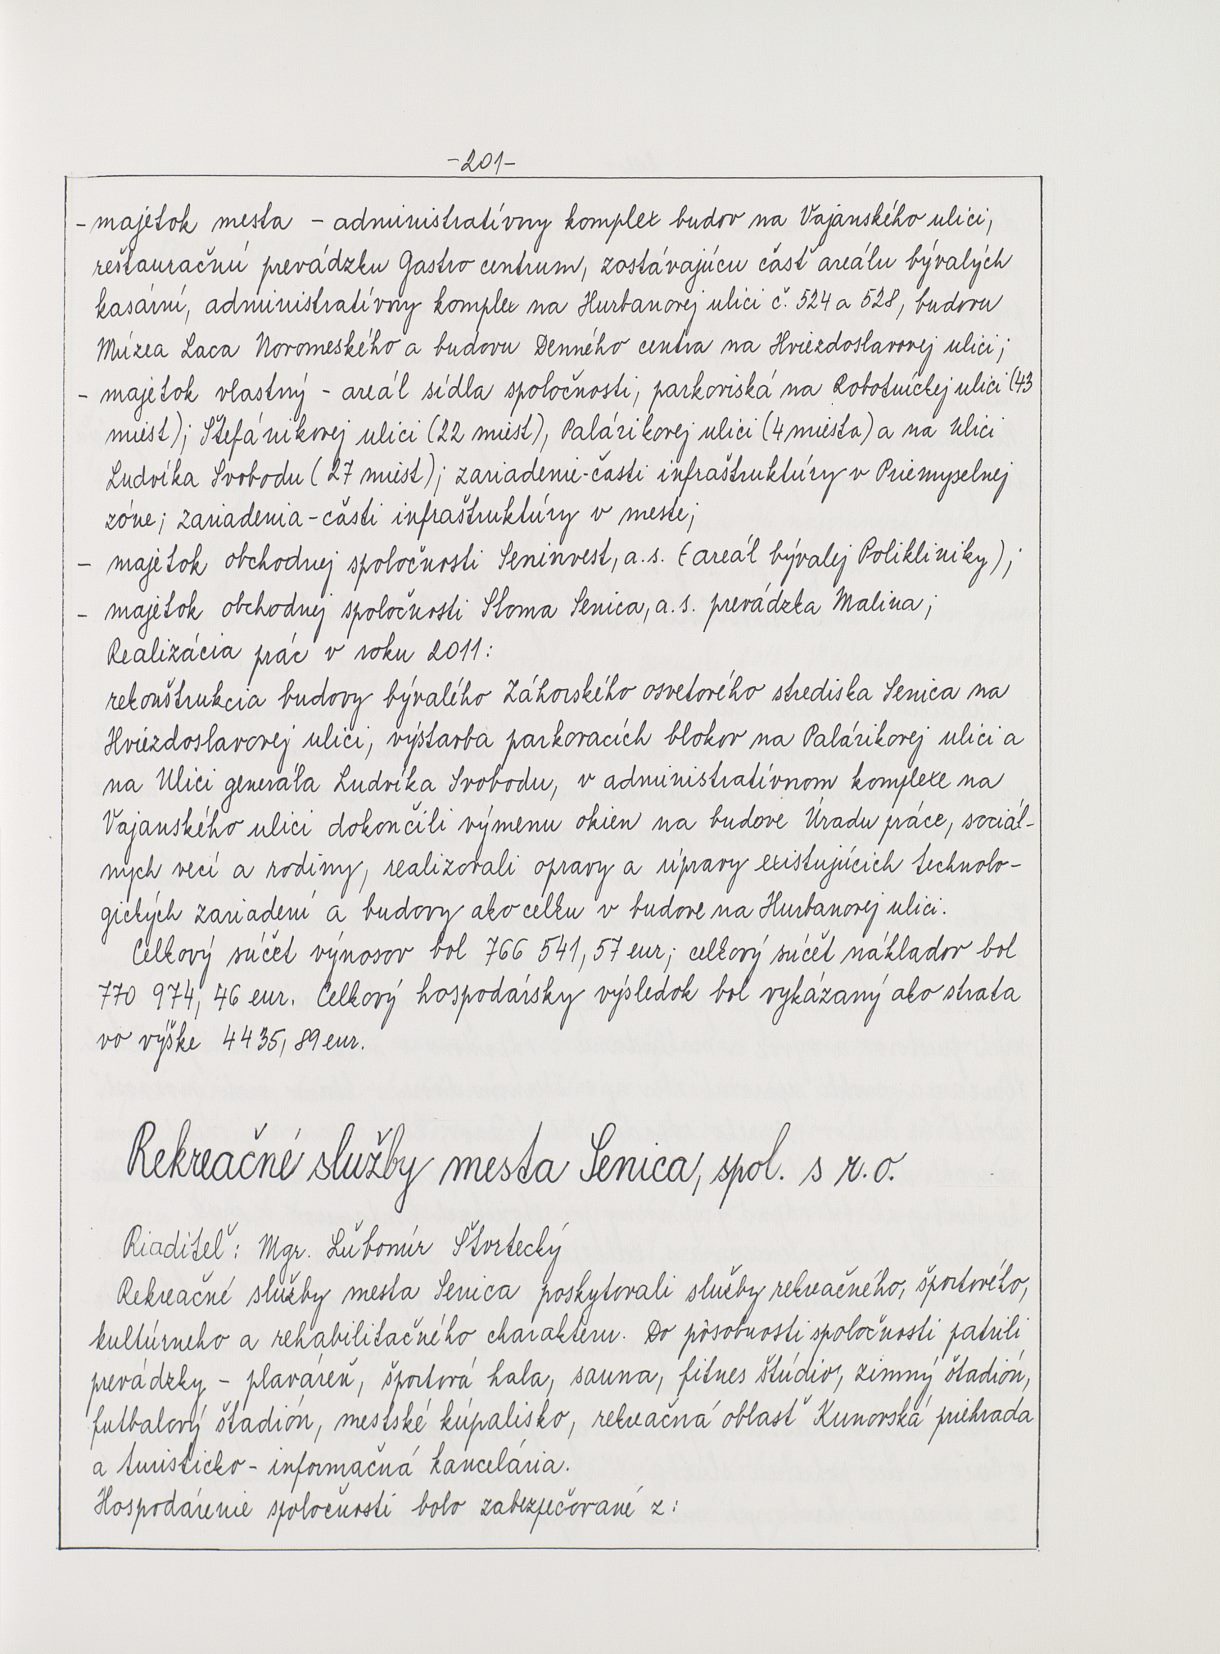 -201-
- majetok mesta - administratívny komplex budov na Vajanského ulici,
reštauračnú prevádzku Gastro centrum, zostávajúcu časť areálu bývalých
kasární, administratívny komplex na Hurbanovej ulici č. 524 a 528, budovu
Múzea Laca Novomeského a budovu Denného centra na Hviezdoslavovej ulici;
- majetok vlastný - areál sídla spoločnosti, parkoviská na Robotníckej ulici (43
miest); Štefánikovej ulici (22 miest), Palárikovej ulici (4 miesta) a na Ulici
Ludvíka Svobodu (27 miest); zariadenie-časti infraštruktúry v Priemyselnej
zóne; zariadenia-časti infraštruktúry v meste;
- majetok obchodnej spoločnosti Seninvest, a.s. (areál bývalej Polikliniky);
- majetok obchodnej spoločnosti Sloma Senica, a.s. prevádzka Malina;
Realizácia prác v roku 2011:
rekonštrukcia budovy bývalého Záhorského osvetového strediska Senica na
Hviezdoslavovej ulici, výstavba parkovacích blokov na Palárikovej ulici a
na Ulici generála Ludvíka Svobodu, v administratívnom komplexe na
Vajanského ulici dokončili výmenu okien na budove Úradu práce, sociál-
nych vecí a rodiny, realizovali opravy a úpravy existujúcich technolo-
gických zariadení a budovy ako celku v budove na Hurbanovej ulici.
Celkový súčet výnosov bol 766 541,57 eur; celkový súčet nákladov bol
770 974,46 eur. Celkový hospodársky výsledok bol vykázaný ako strata
vo výške 4435,89 eur.
Rekreačné služby mesta Senica, spol. s r.o.
Riaditeľ: Mgr. Ľubomír Štvrtecký
Rekreačné služby mesta Senica poskytovali služby rekreačného, športového,
kultúrneho a rehabilitačného charakteru. Do pôsobnosti spoločnosti patrili
prevádzky - plaváreň, športová hala, sauna, fitnes štúdio, zimný štadión,
futbalový štadión, mestské kúpalisko, rekreačná oblasť Kunovská priehrada
a turisticko-informačná kancelária.
Hospodárenie spoločnosti bolo zabezpečované z: